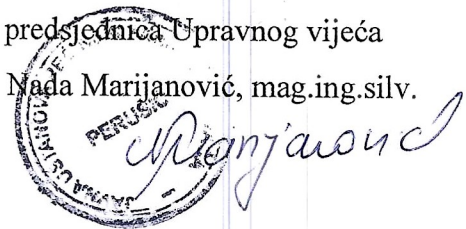 predsjednica Upravnog vijeća
Nada Marijanović, mag.ing.silv.
JAVNA USTANOVA
PERUŠIĆ
NMarijanović